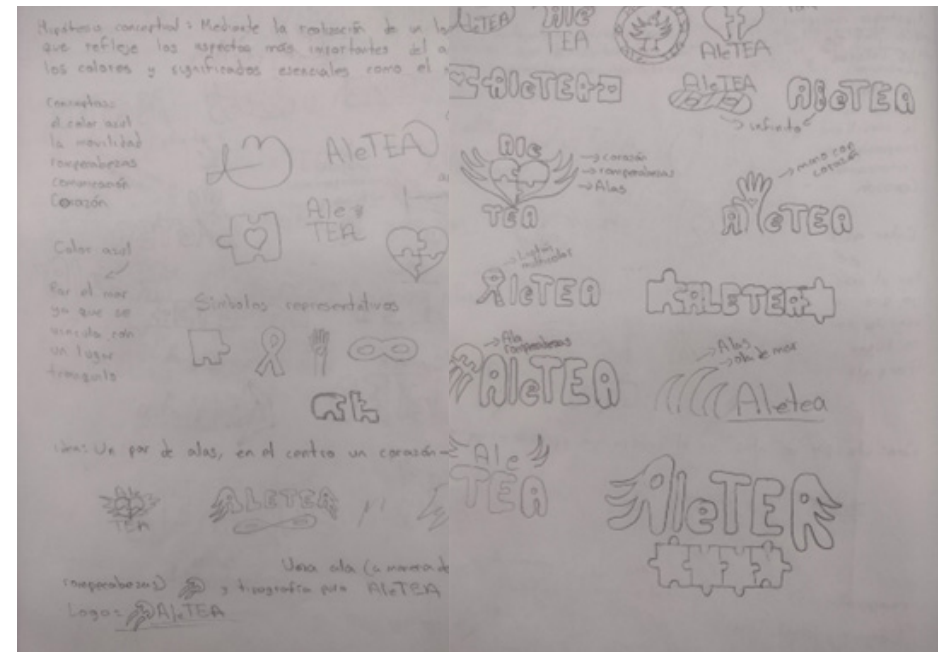 Hipotesis conceptual: Mediante la realización de un lo
que refleje los aspectos más importantes del a
los colores y significados esenciales como el
Conceptos:
el color azul
la movilidad
rompecabezas
comunicación
Corazón
AleTEA
Ale
TEA
Color azul
Por el mar
ya que se
vincula con
un lugar
tranquilo
Simbolos representativos
idea: Un par de alas, en el centro un corazón
TEA
ALETEA
Una ala (a manera de
rompecabezas) y tipografía para AleTEA
Logo: AleTEA
AleTEA
Ale
TEA
AleTEA
AleTEA
AleTEA
infinito
AleTEA
Ale
TEA
corazón
rompecabezas
Alas
mano con
corazón
AleTEA
Listón
AleTEA
ALETEA
Ala
rompecabezas
AleTEA
Alas
ola de mar
Aletea
Ale
TEA
AleTEA